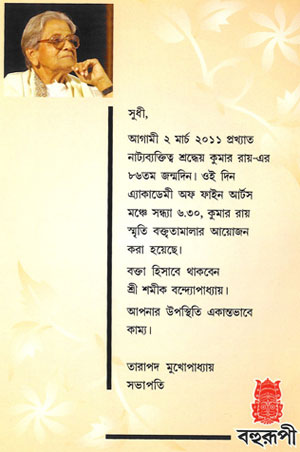 সুধী,
আগামী ২ মার্চ ২০১১ প্রখ্যাত
নাট্যব্যক্তিত্ব শ্রদ্ধেয় কুমার রায়-এর
৮৬তম জন্মদিন। ওই দিন
এ্যাকাডেমী অফ ফাইন আর্টস
মঞ্চে সন্ধ্যা ৬.৩০, কুমার রায়
স্মৃতি বক্তৃতামালার আয়োজন
করা হয়েছে।
বক্তা হিসাবে থাকবেন
শ্রী শমীক বন্দ্যোপাধ্যায়।
আপনার উপস্থিতি একান্তভাবে
কাম্য।
তারাপদ মুখোপাধ্যায়
সভাপতি
বহুরূপী